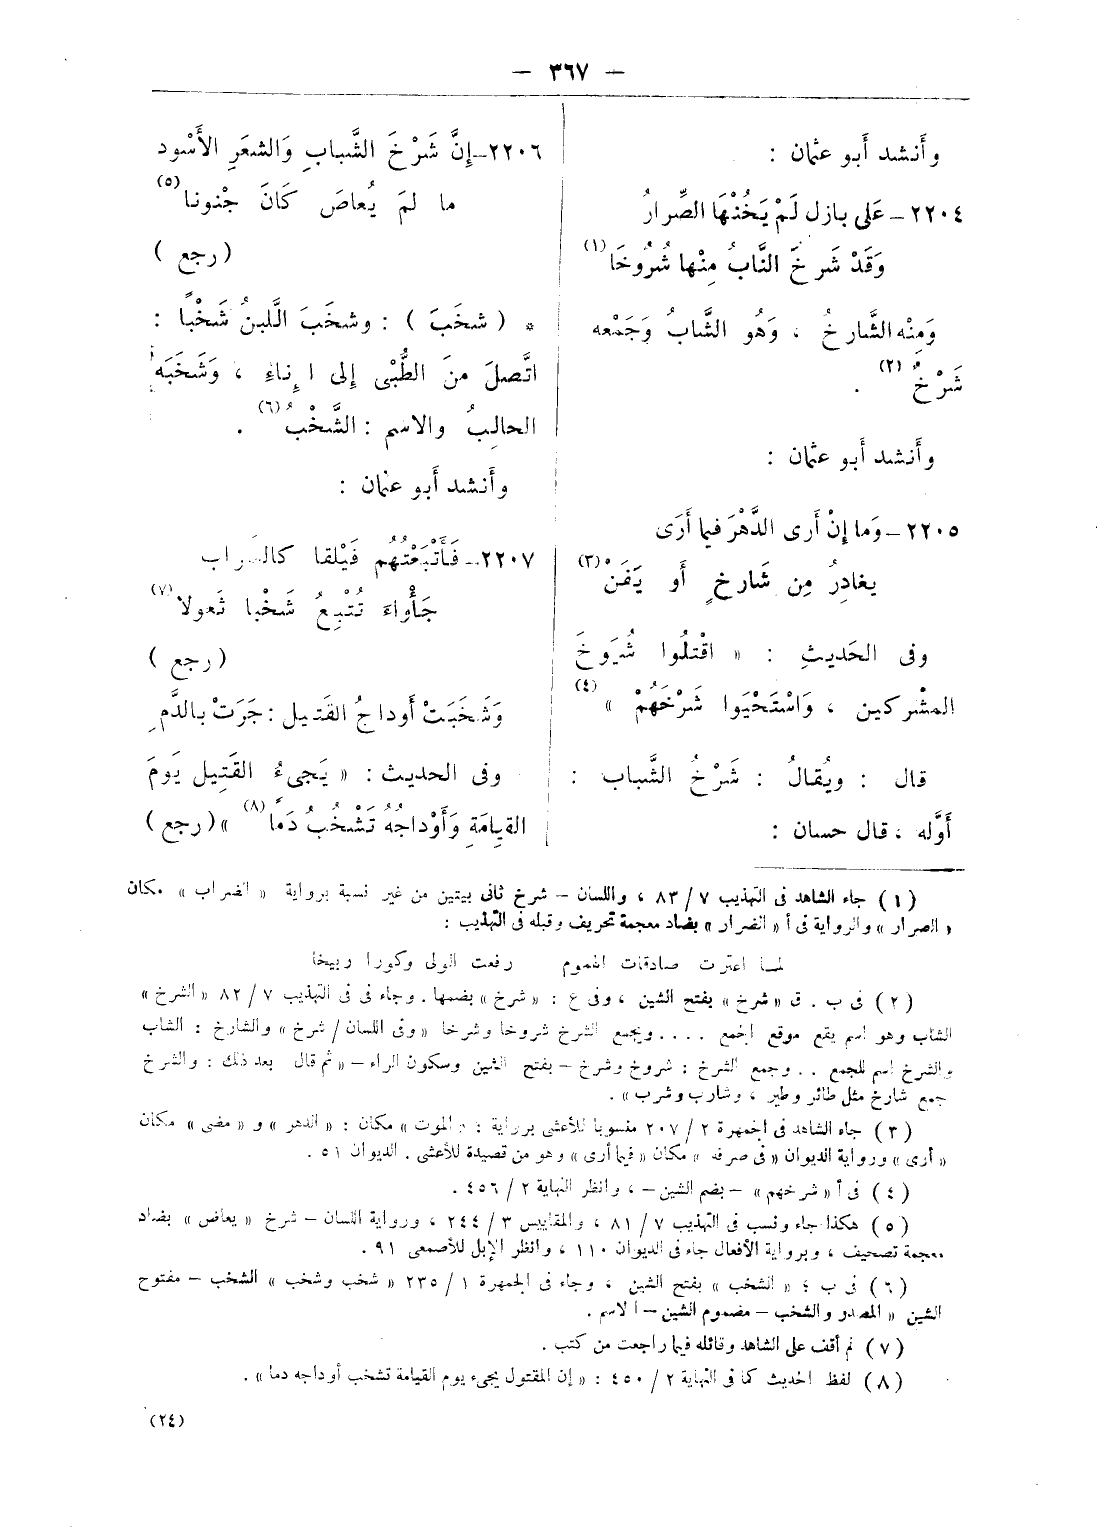 — ٣٦٧ —
وأنشد أبو عثمان :
٢٢٠٤ – عَلى بازل لَمْ يَخُنْها الصِّرارُ
وَقَدْ شَرخَ النَّابُ مِنْها شُرُوخَا (١)
وَمِنْه الشَّارخُ ، وَهُو الشَّابُ وَجَمْعه
شَرْخٌ (٢) .
وأنشد أبو عثمان :
٢٢٠٥ – وَما إِنْ أَرى الدَّهْرَ فيما أَرَى
يغادِرُ مِن شَارخٍ أو يَفَنْ (٣)
وفى الحَديثِ : « اقْتلُوا شُيُوخَ
المشْركين ، وَاسْتَحْيَوا شَرْخَهُمْ (٤) »
قال : ويُقالُ : شَرْخُ الشَّباب :
أَوَّله ، قال حسان :
٢٢٠٦ – إِنَّ شَرْخَ الشَّبابِ وَالشعَرِ الأَسْود
ما لمَ يُعاصَ كَانَ جُنونا (٥)
( رجع )
* ( شخَبَ ) : وشخَبَ الَّلبنُ شَخْباً :
اتَّصلَ منَ الطُّبْى إِلى الإِناءِ ، وَشَخَبَه
الحالِبُ والاسم : الشُّخْبُ (٦) .
وأنشد أبو عثمان :
٢٢٠٧ – فَأَتْبَعْتُهُم فَيْلقا كالسراب
جَأْواءَ تُتْبِعُ شَخْبا ثَعولا (٧)
( رجع )
وَشَخَبَتْ أوداجُ القَتيل : جَرَتْ بالدَّمِ
وفى الحديث : « يَجىءُ القَتِيل يَومَ
القيامَةِ وَأَوْداجُهُ تَشْخُبُ دَماً (٨) » ( رجع )
(١) جاء الشاهد فى التهذيب ٧ / ٨٣ ، واللسان – شرخ ثانى بيتين من غير نسبة برواية « الضراب » مكان
« الصرار » والرواية فى أ « الضرار » بضاد معجمة تحريف وقبله فى التهذيب :
لمـا اعترت صادقات الهموم رفعت الولى وكورا ربيخا
(٢) فى ب . ق « شرخ » بفتح الشين ، وفى ع : « شرخ » بضمها . وجاء فى فى التهذيب ٧ / ٨٢ « الشرخ »
الشاب وهو اسم يقع موقع الجمع .... ويجمع الشرخ شروخا وشرخا « وفى اللسان / شرخ » والشارخ : الشاب
والشرخ اسم للجمع .. وجمع الشرخ : شروخ وشرخ – بفتح الشين وسكون الراء – « ثم قال بعد ذلك : والشرخ
جمع شارخ مثل طائر وطير ، وشارب وشرب » .
(٣) جاء الشاهد فى الجمهرة ٢ / ٢٠٧ منسوبا للأعشى برواية : « الموت » مكان : « الدهر » و « مضى » مكان
« أرى » ورواية الديوان « فى صرفه » مكان « فيما أرى » وهو من قصيدة للأعشى . الديوان ٥١ .
(٤) فى أ « شرخهم » – بضم الشين – ، وانظر النهاية ٢ / ٤٥٦ .
(٥) هكذا جاء ونسب فى التهذيب ٧ / ٨١ ، والمقاييس ٣ / ٢٤٤ ، ورواية اللسان – شرخ « يعاض » بضاد
معجمة تصحيف ، وبرواية الأفعال جاء فى الديوان ١١٠ ، وانظر الإبل للأصمعى ٩١ .
(٦) فى ب ؛ « الشخب » بفتح الشين ، وجاء فى الجمهرة ١ / ٢٣٥ « شخب وشخب » الشخب – مفتوح
الشين « المصدر والشخب – مضموم الشين – الاسم .
(٧) لم أقف على الشاهد وقائله فيما راجعت من كتب .
(٨) لفظ الحديث كما فى النهاية ٢ / ٤٥٠ : « إن المقتول يجىء يوم القيامة تشخب أوداجه دما » .
(٢٤)